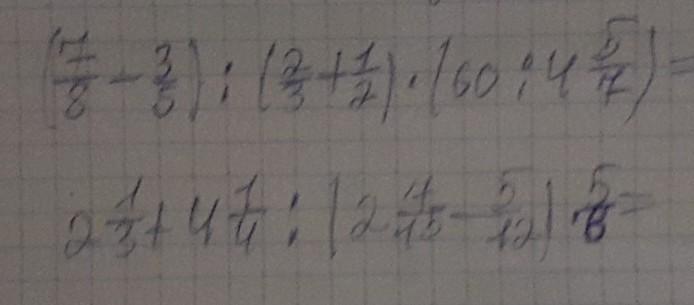 (7/8 - 3/5) : (2/3 + 1/2) · (60 : 4 5/7) =
2 1/3 + 4 1/4 : (2 4/15 - 5/12) 5/8 =